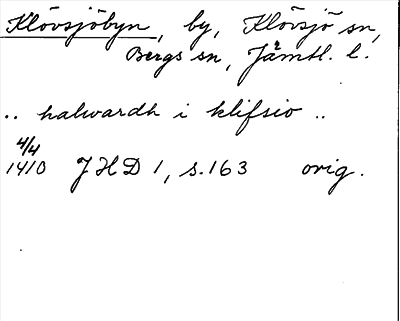 Klövsjöbyn, by, Klövsjö sn,
Bergs sn, Jämtl. l.
.. halwardh i klifsio ..
4/4
1410 JHD 1, s. 163 orig.